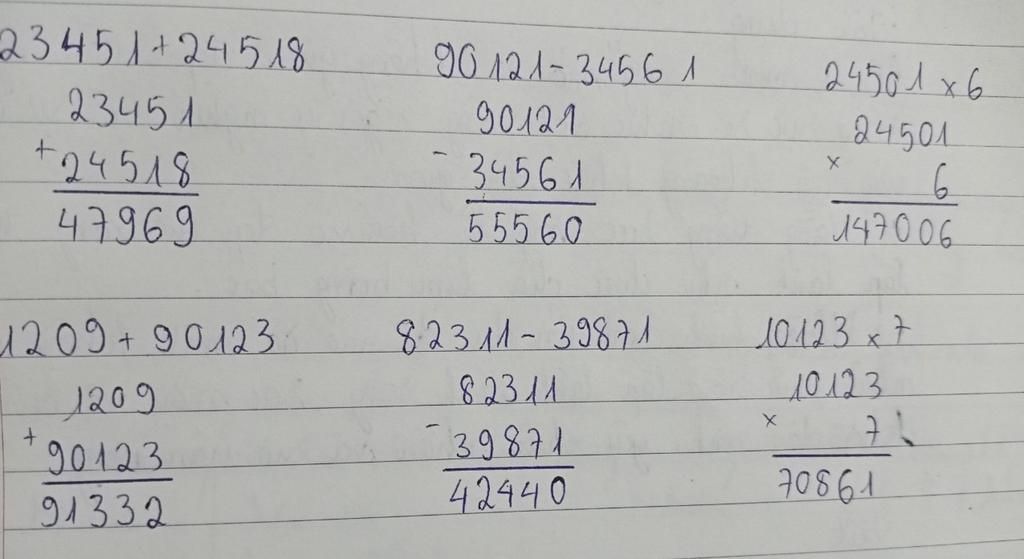 23451+24518
23451
+
24518
47969
90121-34561
90121
-
34561
55560
24501 x 6
24501
x
6
147006
1209 + 90123
1209
+
90123
91332
82311 - 39871
82311
-
39871
42440
10123 x 7
10123
x
7
70861